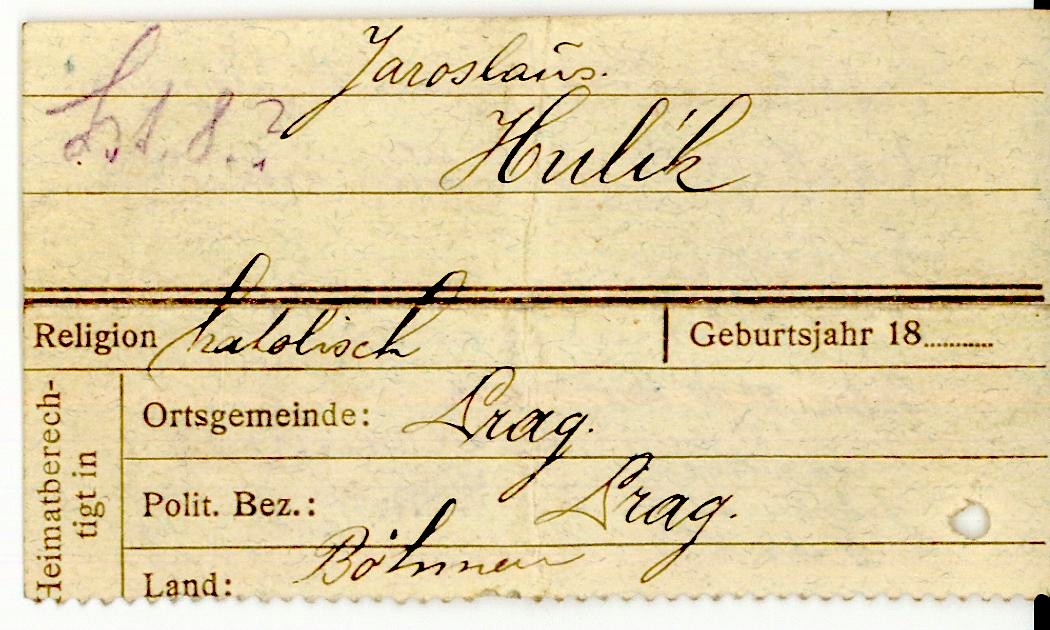 Jaroslaus.
Hulík
Religion katolisch
Geburtsjahr 18..........
Heimatberech-
tigt in
Ortsgemeinde: Prag.
Polit. Bez.: Prag.
Land: Böhmen